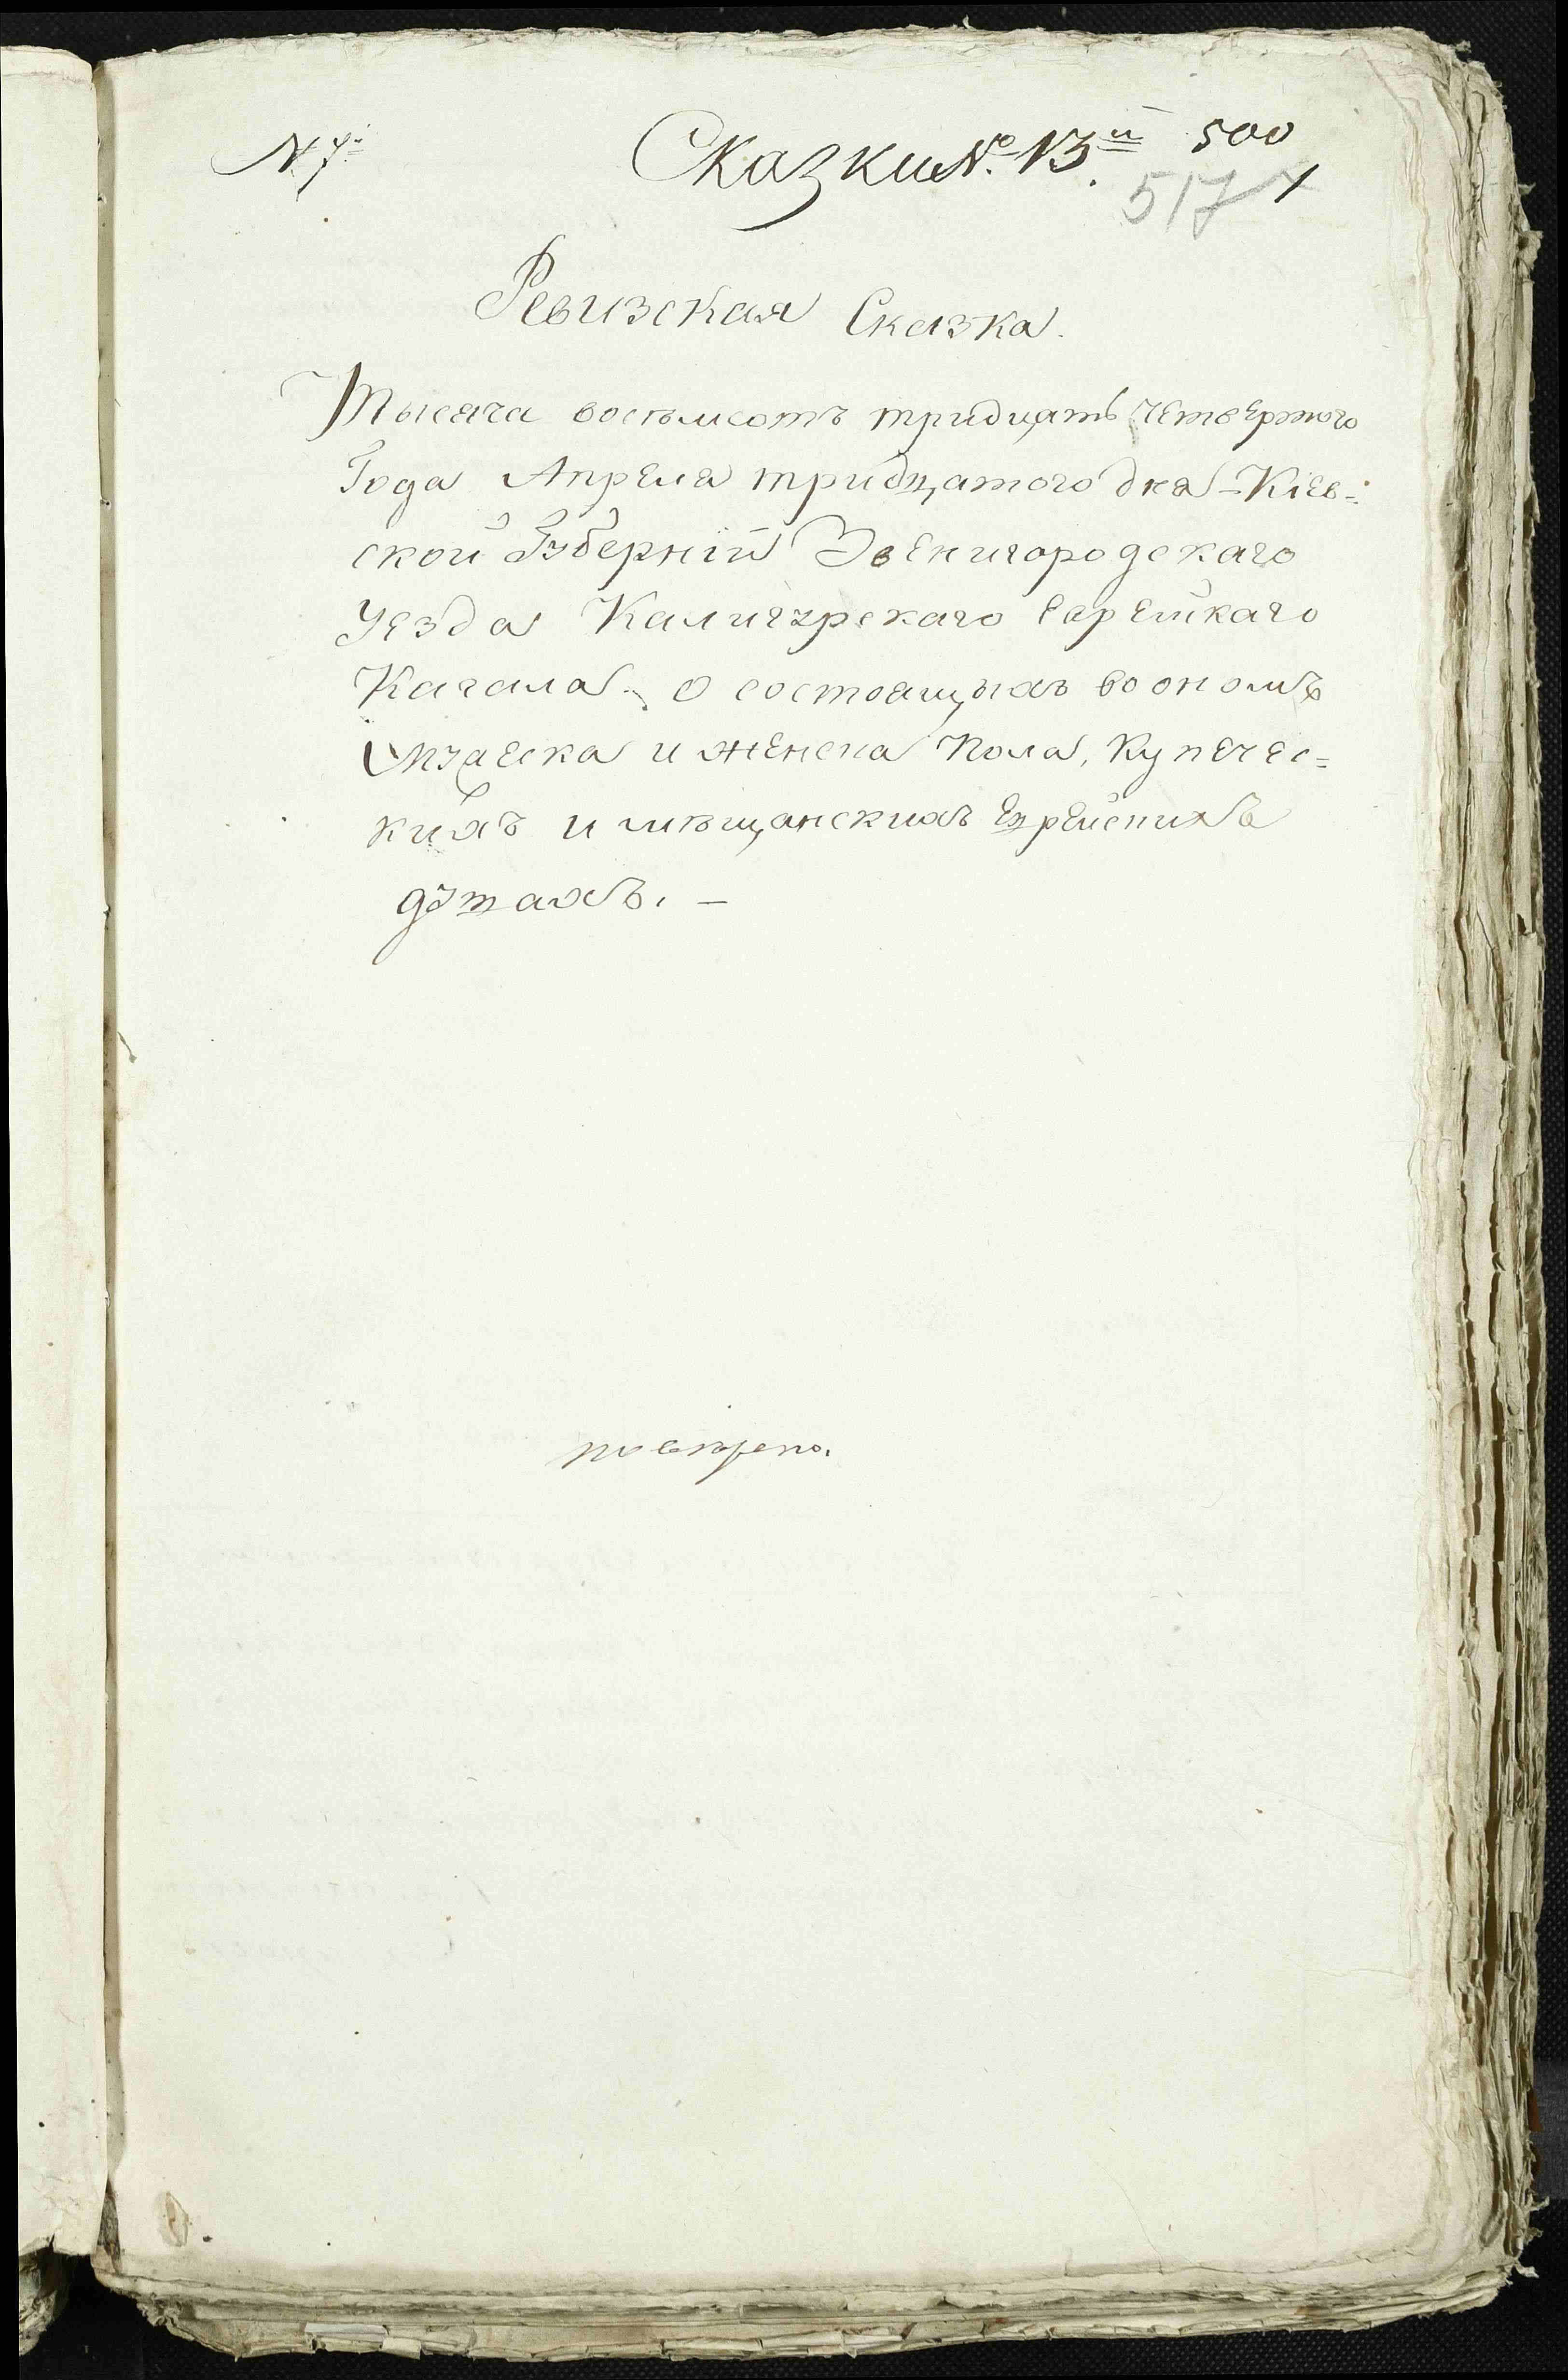 N 7й
Сказки №. 13й 500
517
Ревизская Сказка.
Тысяча восемсотъ тридцать четвертого
Года Апреля тридцатого дня - Кіев=
ской Губерніи Звенигородскаго
Уезда Калигурскаго Еврейскаго
Кагала. о состоящихъ во ономъ
мужеска и женска пола, купечес=
кихъ и мѣщанскихъ Еврейскихъ
душахъ. —
повѣрено.